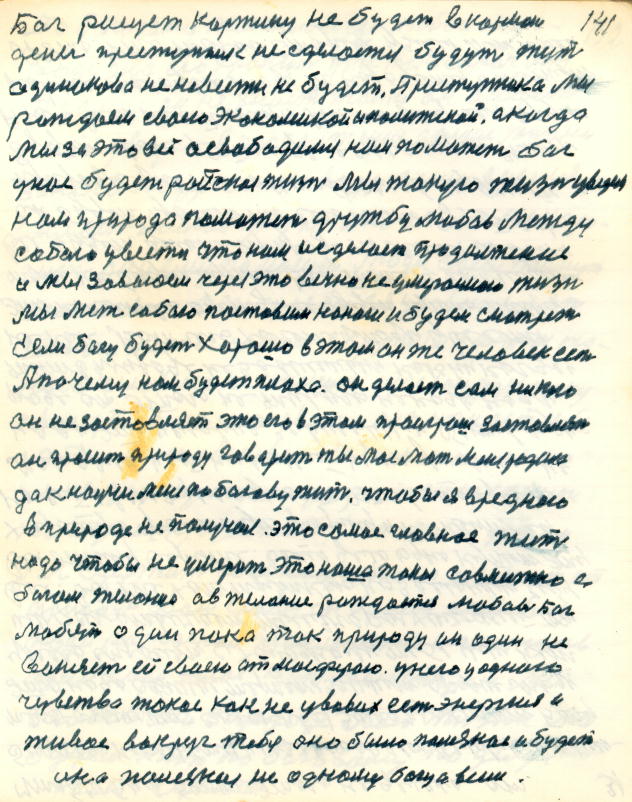 Бог рисует картину не будет в кармон 141
денег преступник не сделается будут жит
одинокова не невести не будет. Приступника мы
рождаем своею экономикой и политикой, а когда
мы за это всё освободимся нам поможет Бог
у нас будет райская жизн мы такую жизн увидим
нам природа поможет дружбу любов между
собою увести что нам исделает продолжение
и мы завоюем через это вечно неумераемою жизн
мы меж собою поставим на ноги и будем смотреть
Если богу будет хорошо в этом он же человек сет
А почему нам будет плоха. он делает сам никто
он не застовляет это его в этом природа заставляет
он просит природу говарит ты моя мат меня родила
дак научи меня по богову жит. чтобы я вредного
в природе не получал. это самое главное жит
надо чтобы не умерат это наша така совмистно с
богом желание а в желание рождается любов Бог
любят один пока так природу он один не
воняет ей своею атмосферою. у него у одного
чувства такое как не у вовсих сет энергия а
живое вокруг тебя оно было полезное и будет
она полезная не одному бога всем.